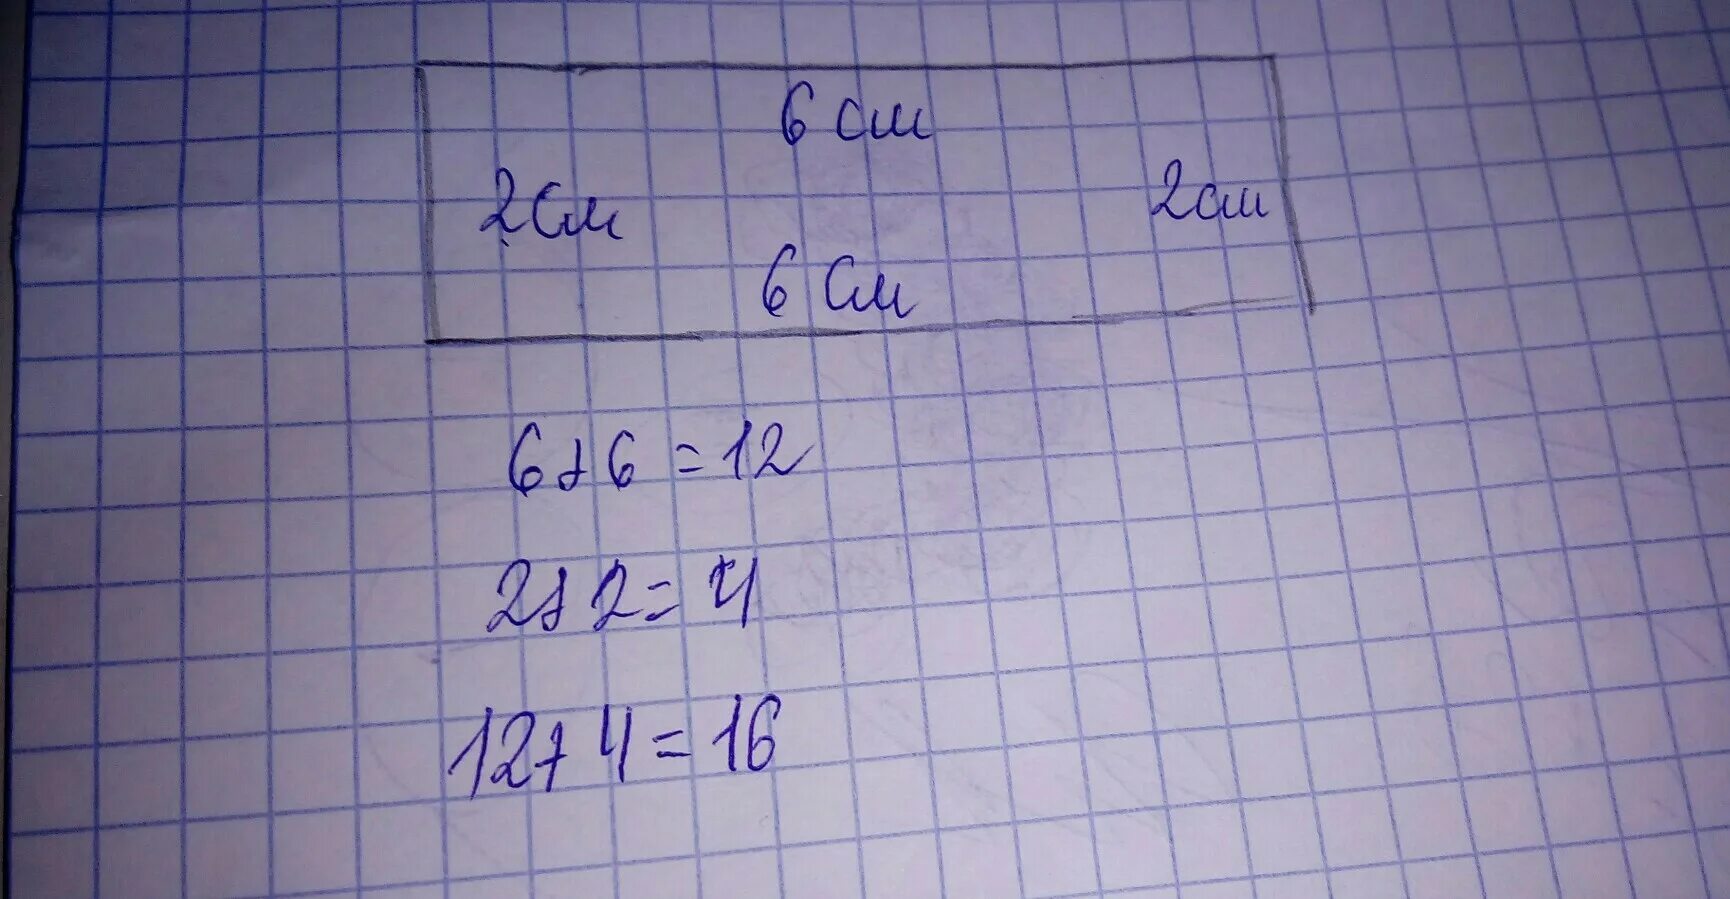 6 см
2см 2см
6 см
6+6=12
2+2=4
12+4=16